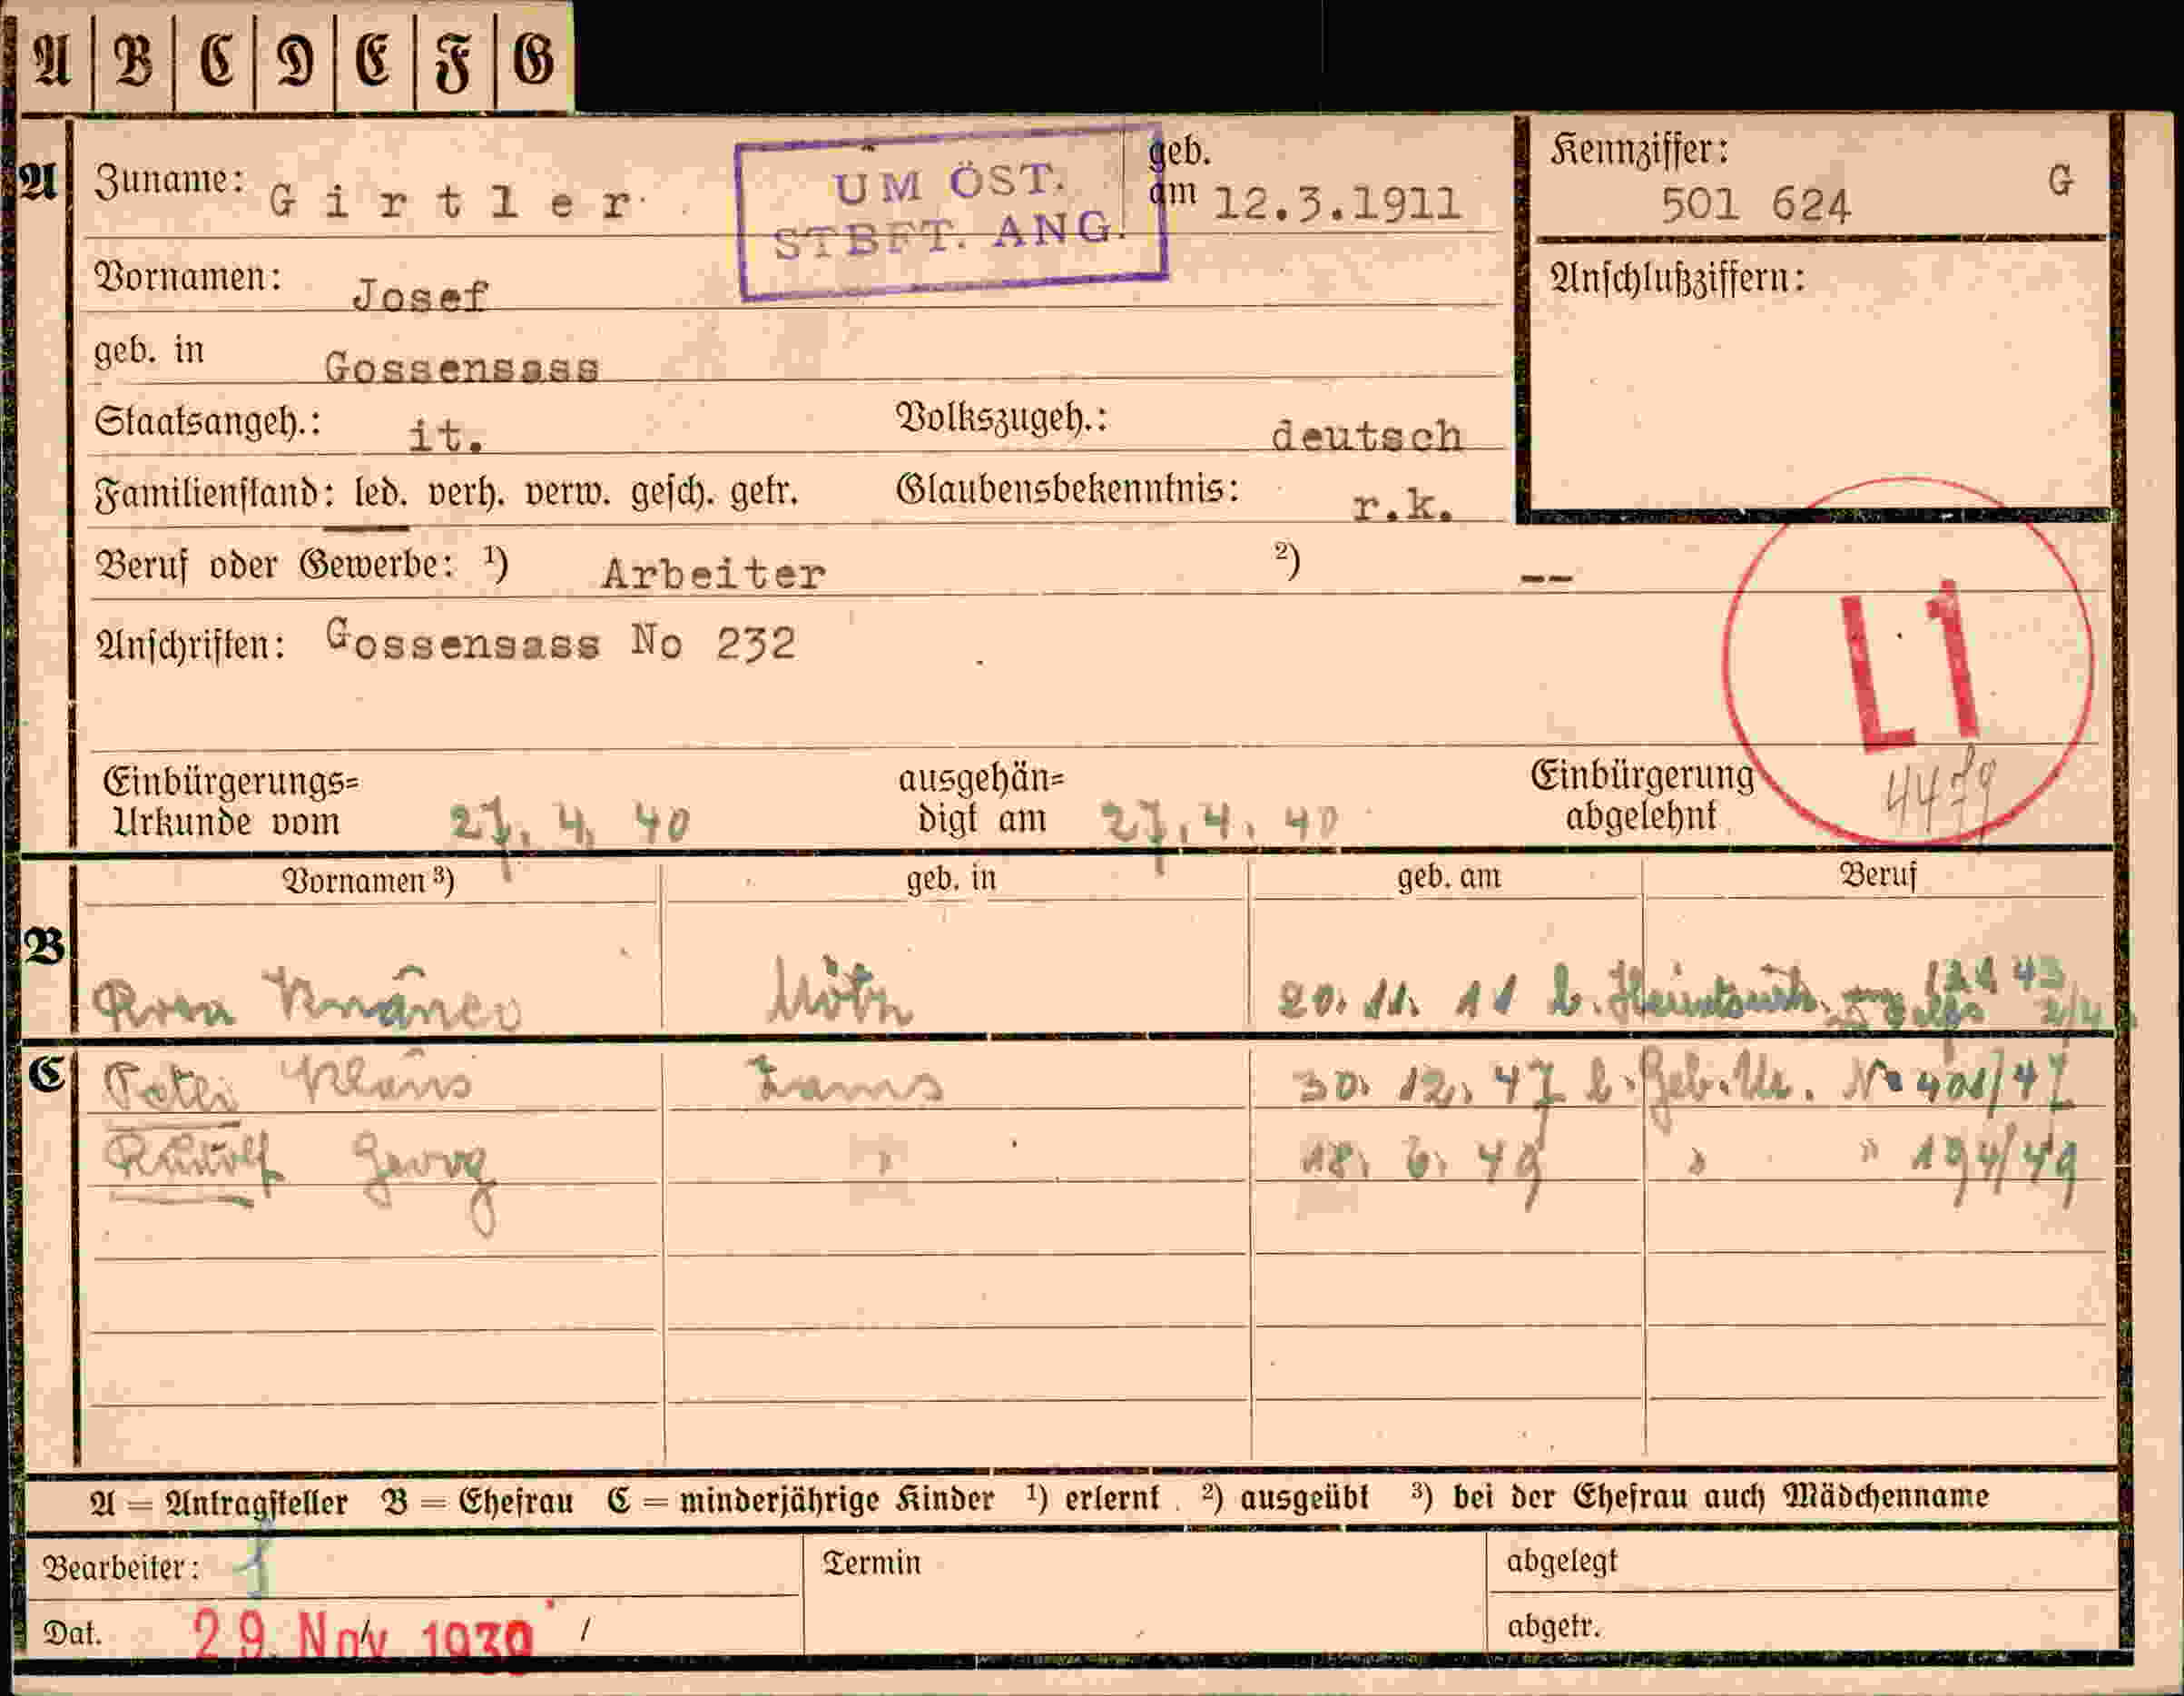 A B C D E F G
A Zuname: Girtler geb. am 12.3.1911 Kennziffer: 501 624 G
UM ÖST. STBFT. ANG.
Vornamen: Josef Anschlußziffern:
geb. in Gossensass
Staatsangeh.: it. Volkszugeh.: deutsch
Familienstand: led. verh. verw. gesch. getr. Glaubensbekenntnis: r.k.
Beruf oder Gewerbe: 1) Arbeiter 2) --
L1
Anschriften: Gossensass No 232
Einbürgerungs= Urkunde vom 27. 4. 40 ausgehän= digt am 27. 4. 40 Einbürgerung abgelehnt
Vornamen 3) geb. in geb. am Beruf
B Rosa Mötz 20. 11. 11
C Klaus Zams 30. 12. 47 b. Geb. Ur. No 401/47
Rudolf Georg " 18. 6. 49 " " 194/49
A = Antragsteller B = Ehefrau C = minderjährige Kinder 1) erlernt 2) ausgeübt 3) bei der Ehefrau auch Mädchenname
Bearbeiter: Termin abgelegt
Dat. 29. Nov 1939 / abgetr.